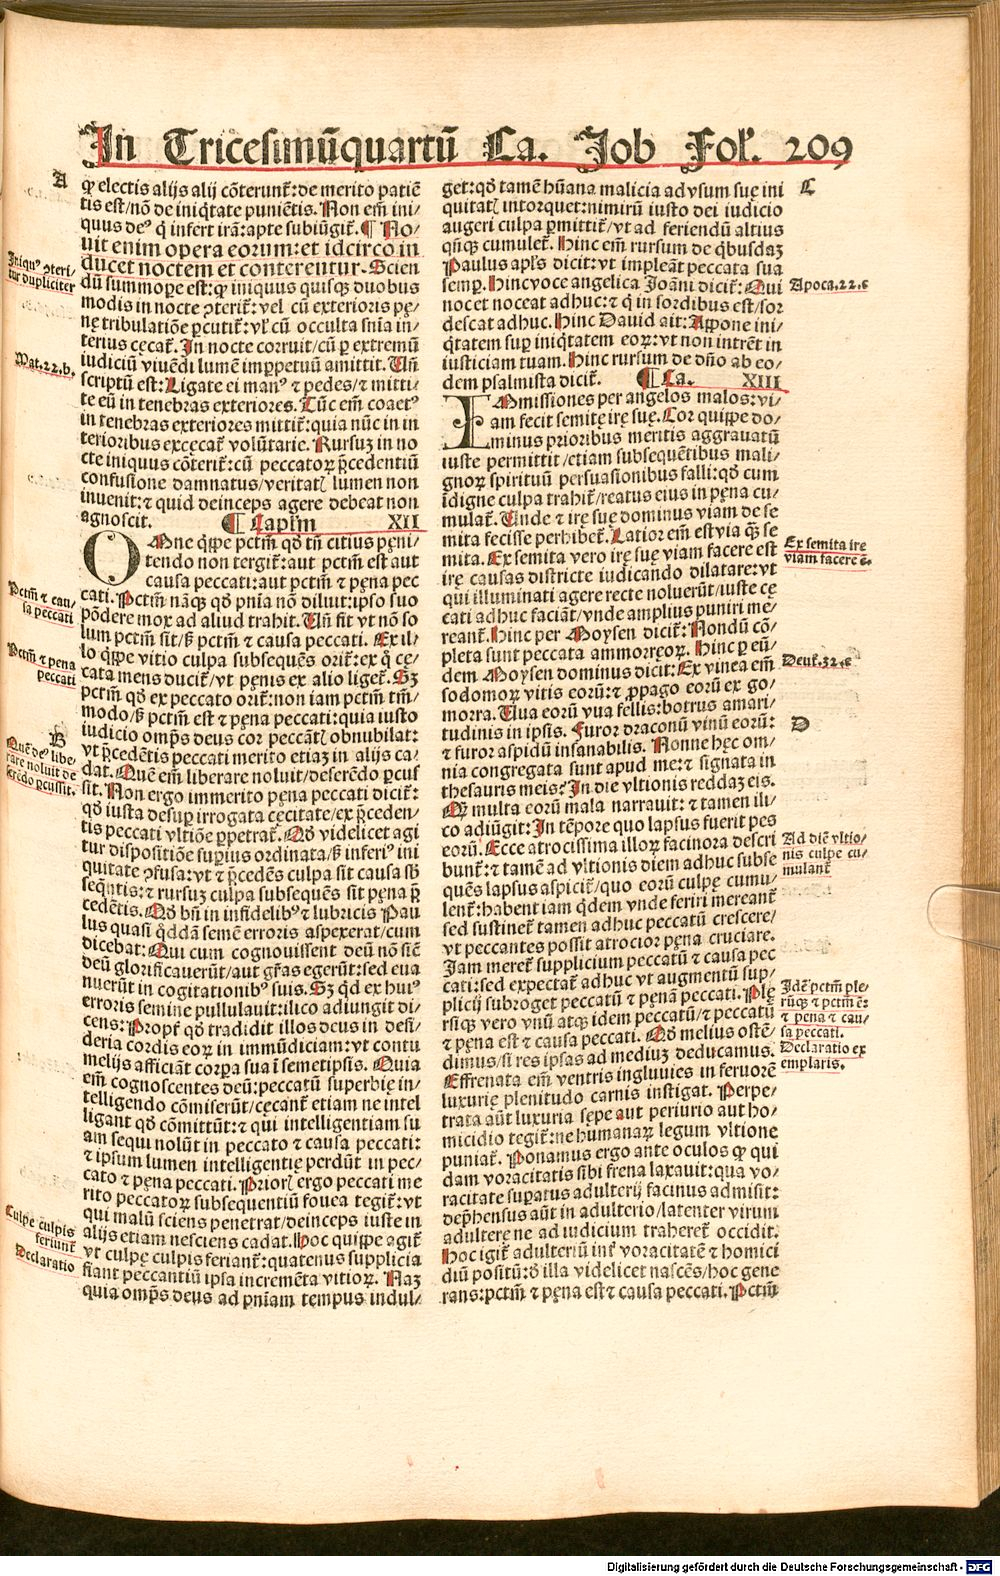 In Tricesimũquartũ Ca. Job Fol. 209
A
ꝙ electis alijs alij cõterunt᷑: de merito patiẽ
tis est/nõ de iniq̃tate puniẽtis. Non em̃ ini/
quus deꝰ q̃ infert irã: apte subiũgit. ¶ No/
uit enim opera eorum: et idcirco in
ducet noctem et conterentur. Scien
dũ summope est: ꝙ iniquus quisqꝫ duobus
modis in nocte ↄterit᷑: vel cũ exterioris pę/
nę tribulatiõe ꝑcutit᷑: vl' cũ occulta sñia in/
terius cęcat᷑. In nocte corruit/cũ ꝑ extremũ
iudiciũ viuẽdi lumẽ imꝑpetuũ amittit. Vñ
scriptũ est: Ligate ei manꝰ ⁊ pedes/⁊ mitti/
te eũ in tenebras exteriores. Tũc em̃ coactꝰ
in tenebras exteriores mittit᷑: quia nũc in in
terioribus excęcat᷑ volũtarie. Rursuꝫ in no
cte iniquus cõterit᷑: cũ peccatoꝝ p̃cedentiũ
confusione damnatus/veritatꝭ lumen non
inuenit: ⁊ quid deinceps agere debeat non
agnoscit. ¶ Capl'm XII
OMne q̃ppe pctm̃ qď tñ citius pęni/
tendo non tergit᷑: aut pctm̃ est aut
causa peccati: aut pctm̃ ⁊ pęna pec
cati. Pctm̃ nãqꝫ qď pnia nõ diluit: ipso suo
põdere mox ad aliud trahit. Vñ fit vt nõ so
lum pctm̃ sit/ß pctm̃ ⁊ causa peccati. Ex il/
lo q̃ppe vitio culpa subsequẽs orit᷑: ex q̃ cę/
cata mens ducit᷑/vt pẽnis ex alio liget᷑. Sꝫ
pctm̃ qď ex peccato orit᷑: non iam pctm̃ tm̃/
modo/ß pctm̃ est ⁊ pęna peccati: quia iusto
iudicio omp̃s deus cor peccãtꝭ obnubilat:
vt p̃cedẽtis peccati merito etiaꝫ in alijs ca/
dat. Quẽ em̃ liberare noluit/deserẽdo ꝑcus
sit. Non ergo immerito pęna peccati dicit᷑:
qď iusta desuꝑ irrogata cęcitate/ex p̃ceden/
tis peccati vltiõe ꝑpetrat᷑. Qď videlicet agi
tur dispositiõe suꝑius ordinata/ß inferiꝰ ini
quitate ↄfusa: vt ⁊ p̃cedẽs culpa sit causa sb̃
seq̃ntis: ⁊ rursuꝫ culpa subsequẽs sit pęna p̃
cedẽtis. Qď bñ in infidelibꝰ ⁊ lubricis Pau
lus quasi q̃ddã semẽ erroris aspexerat/cum
dicebat: Qui cum cognouissent deũ nõ sic̃
deũ glorificauerũt/aut gr̃as egerũt: sed eua
nuerũt in cogitationibꝰ suis. Sꝫ q̃d ex huiꝰ
erroris semine pullulauit: ilico adiungit di/
cens: Propt᷑ qď tradidit illos deus in desi/
deria cordis eoꝝ in immũdiciam: vt contu
melijs afficiãt corꝑa sua ĩ semetipsis. Quia
em̃ cognoscentes deũ: peccatũ superbię in/
telligendo cõmiserũt/cęcant᷑ etiam ne intel
ligant qď cõmittũt: ⁊ qui intelligentiam su
am sequi nolũt in peccato ⁊ causa peccati:
⁊ ipsum lumen intelligentię perdũt in pec/
cato ⁊ pęna peccati. Priorꝭ ergo peccati me
rito peccatoꝝ subsequentiũ fouea tegit᷑: vt
qui malũ sciens penetrat/deinceps iuste in
alijs etiam nesciens cadat. Hoc quippe agit᷑
vt culpę culpis feriant᷑: quatenus supplicia
fiant peccantiũ ipsa incremẽta vitioꝝ. Naꝫ
quia omp̃s deus ad pniam tempus indul/
Iniquꝰ ↄteri/
tur dupliciter
Mat. 22. b.
Pctm̃ ⁊ cau/
sa peccati
Pctm̃ ⁊ pena
peccati
B
Quẽ deꝰ libe/
rare noluit de
serẽdo ꝑcussit.
Culpe culpis
feriunt᷑
Declaratio
get: qď tamẽ hũana malicia ad vsum suę ini
quitatꝭ intorquet: nimirũ iusto dei iudicio
augeri culpa ꝑmittit᷑/vt ad feriendũ altius
qñqꝫ cumulet᷑. Hinc em̃ rursum de q̃busdaꝫ
Paulus apl's dicit: vt impleãt peccata sua
semꝑ. Hinc voce angelica Joãni dicit᷑: Qui
nocet noceat adhuc: ⁊ q̃ in sordibus est/sor
descat adhuc. Hinc Dauid ait: Appone ini/
q̃tatem suꝑ iniq̃tatem eoꝝ: vt non intrẽt in
iusticiam tuam. Hinc rursum de dño ab eo/
dem psalmista dicit᷑. ¶ Ca. XIII
IMmissiones per angelos malos: vi/
am fecit semitę irę suę. Cor quippe do/
minus prioribus meritis aggrauatũ
iuste permittit/etiam subsequẽtibus mali/
gnoꝝ spirituũ persuasionibus falli: qď cum
ĩdigne culpa trahit᷑/reatus eius in pęna cu/
mulat᷑. Vnde ⁊ irę suę dominus viam de se
mita fecisse perhibet᷑. Latior em̃ est via q̃ꝫ se
mita. Ex semita vero irę suę viam facere est
irę causas districte iudicando dilatare: vt
qui illuminati agere recte noluerũt/iuste cę
cati adhuc faciãt/vnde amplius puniri me/
reant᷑. Hinc per Moysen dicit᷑: Nondũ cõ/
pleta sunt peccata ammorreoꝝ. Hinc ꝑ eũ/
dem Moysen dominus dicit: Ex vinea em̃
sodomoꝝ vitis eorũ: ⁊ ꝓpago eorũ ex go/
morra. Vua eorũ vua fellis: botrus amari/
tudinis in ipsis. Furor draconũ vinũ eorũ:
⁊ furor aspidũ insanabilis. Nonne hęc om/
nia congregata sunt apud me: ⁊ signata in
thesauris meis? In die vltionis reddaꝫ eis.
Qꝝ multa eorũ mala narrauit: ⁊ tamen ili/
co adiũgit: In tẽpore quo lapsus fuerit pes
eorũ. Ecce atrocissima illoꝝ facinora descri
bunt᷑: ⁊ tamẽ ad vltionis diem adhuc subse
quẽs lapsus aspicit᷑/quo eorũ culpę cumu/
lent᷑: habent iam q̃dem vnde feriri mereant᷑
sed sustinet᷑ tamen adhuc peccatũ crescere/
vt peccantes possit atrocior pęna cruciare.
Jam meret᷑ supplicium peccatũ ⁊ causa pec
cati: sed expectat᷑ adhuc vt augmentũ sup/
plicij subroget peccatũ ⁊ pęnã peccati. Plę
rũqꝫ vero vnũ atqꝫ idem peccatũ/⁊ peccatũ
⁊ pęna est ⁊ causa peccati. Qď melius ostẽ/
dimus/si res ipsas ad mediuꝫ deducamus.
Effrenata em̃ ventris ingluuies in feruorẽ
luxurię plenitudo carnis instigat. Perpe/
trata aũt luxuria sępe aut periurio aut ho/
micidio tegit᷑: ne humanaꝝ legum vltione
puniat᷑. Ponamus ergo ante oculos ꝙ qui
dam voracitatis sibi frena laxauit: qua vo/
racitate suꝑatus adulterij facinus admisit:
dep̃hensus aũt in adulterio/latenter virum
adulterę ne ad iudicium traheret᷑ occidit.
Hoc igit᷑ adulteriũ int᷑ voracitatẽ ⁊ homici
diũ positũ: ď illa videlicet nascẽs/hoc gene
rans: pctm̃ ⁊ pęna est ⁊ causa peccati. Pctm̃
C
Apoca. 22. c
Ex semita ire
viam facere ẽ.
Deut᷑. 32. e
D
Ad diẽ vltio/
nis culpe cu/
mulant᷑
Idẽ pctm̃ ple/
rũqꝫ ⁊ pctm̃ ẽ:
⁊ pena ⁊ cau/
sa peccati.
Declaratio ex
emplaris.
Digitalisierung gefördert durch die Deutsche Forschungsgemeinschaft - DFG